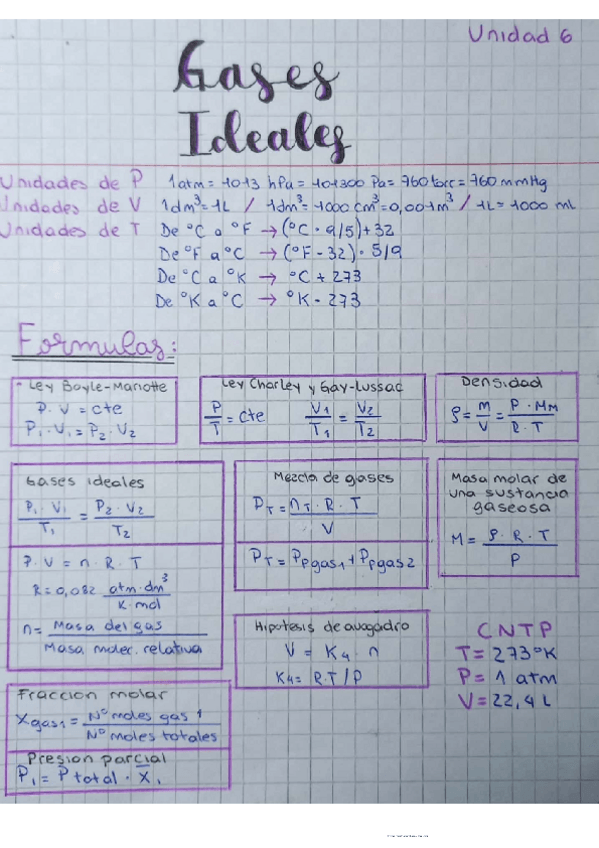 Unidad 6
Gases
Ideales
Unidades de P 1atm = 1013 hPa = 101300 Pa = 760 torr = 760 mmHg
Unidades de V 1dm³ = 1L / 1dm³ = 1000 cm³ = 0,001m³ / 1L = 1000 mL
Unidades de T De °C a °F → (°C · 9/5) + 32
De °F a °C → (°F - 32) · 5/9
De °C a °K → °C + 273
De °K a °C → °K - 273
Formulas:
Ley Boyle-Mariotte
P · V = cte
P₁ · V₁ = P₂ · V₂
Ley Charley y Gay-Lussac
P/T = cte V₁/T₁ = V₂/T₂
Densidad
ρ = m/V = P · Mm / R · T
Gases ideales
P₁ · V₁ / T₁ = P₂ · V₂ / T₂
P · V = n · R · T
R = 0,082 atm · dm³ / K · mol
n = Masa del gas / Masa molec. relativa
Mezcla de gases
PT = nT · R · T / V
PT = Ppgas1 + Ppgas2
Masa molar de
una sustancia
gaseosa
M = ρ · R · T / P
Hipotesis de avogadro
V = K4 · n
K4 = R.T/P
CNTP
T = 273°K
P = 1 atm
V = 22,4 L
Fraccion molar
Xgas1 = N° moles gas 1 / N° moles totales
Presion parcial
P₁ = P total · X₁